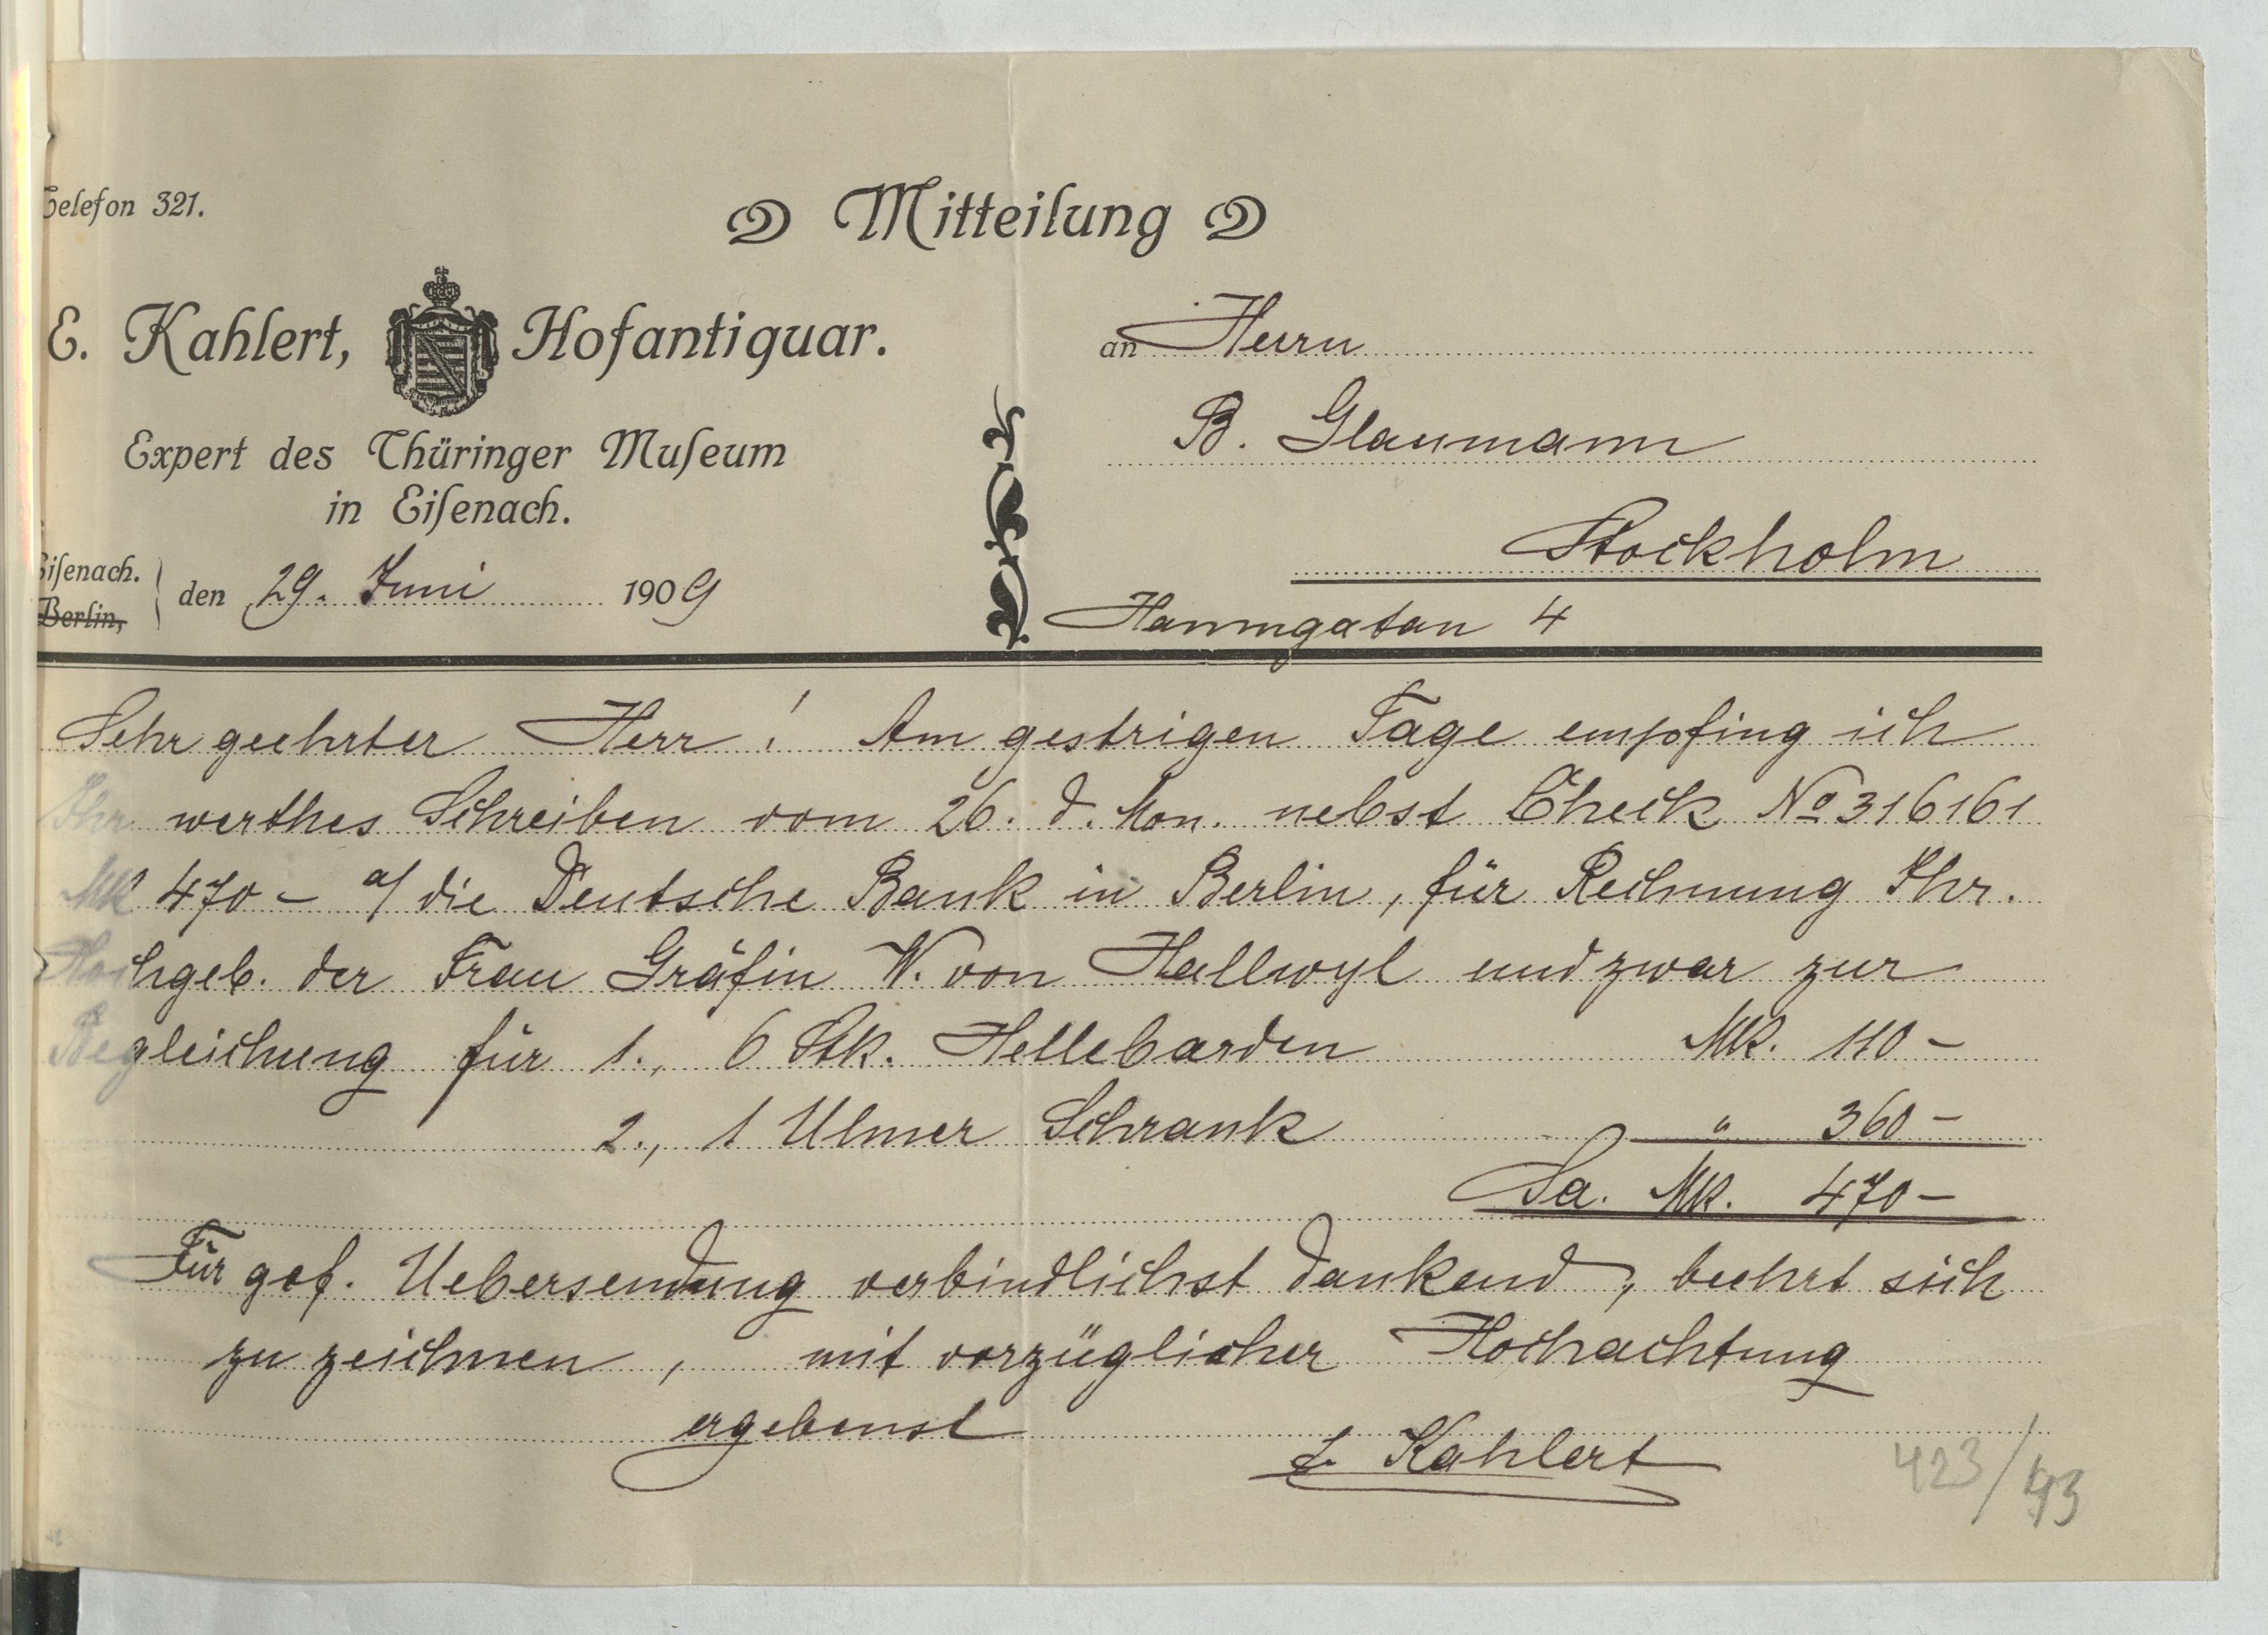 Telefon 321.
Mitteilung
E. Kahlert, Hofantiquar.
Expert des Thüringer Muſeum
in Eiſenach.
Eiſenach.
Berlin,
den 29. Juni 1909
an Herrn
B. Glaumann
Stockholm
Hamngatan 4
Sehr geehrter Herr! Am gestrigen Tage empfing ich
Ihr werthes Schreiben vom 26. d. Mon. nebst Check No 316161
Mk 470 – a/ die Deutsche Bank in Berlin, für Rechnung Ihr.
Hochgeb. der Frau Gräfin W. von Hallwyl und zwar zur
Begleichung für 1., 6 Stk. Hellebarden Mk. 110 –
2., 1 Ulmer Schrank " 360 –
Sa. Mk. 470 –
Für gef. Uebersendung verbindlichst dankend, beehrt sich
zu zeichnen, mit vorzüglicher Hochachtung
ergebenst
E. Kahlert
423/93